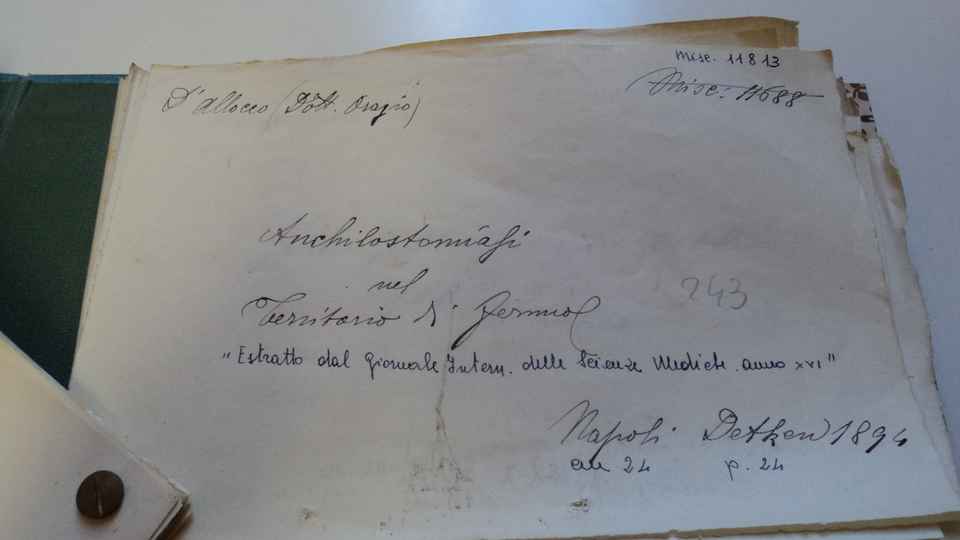 Misc. 11813
Misc. 11688
D'Allocco (Dott. Orazio)
Anchilostomiasi
nel
Territorio di Fermo
243
"Estratto dal Giornale Intern. delle Scienze Mediche. anno XVI"
Napoli Detken 1894
in 24 p. 24